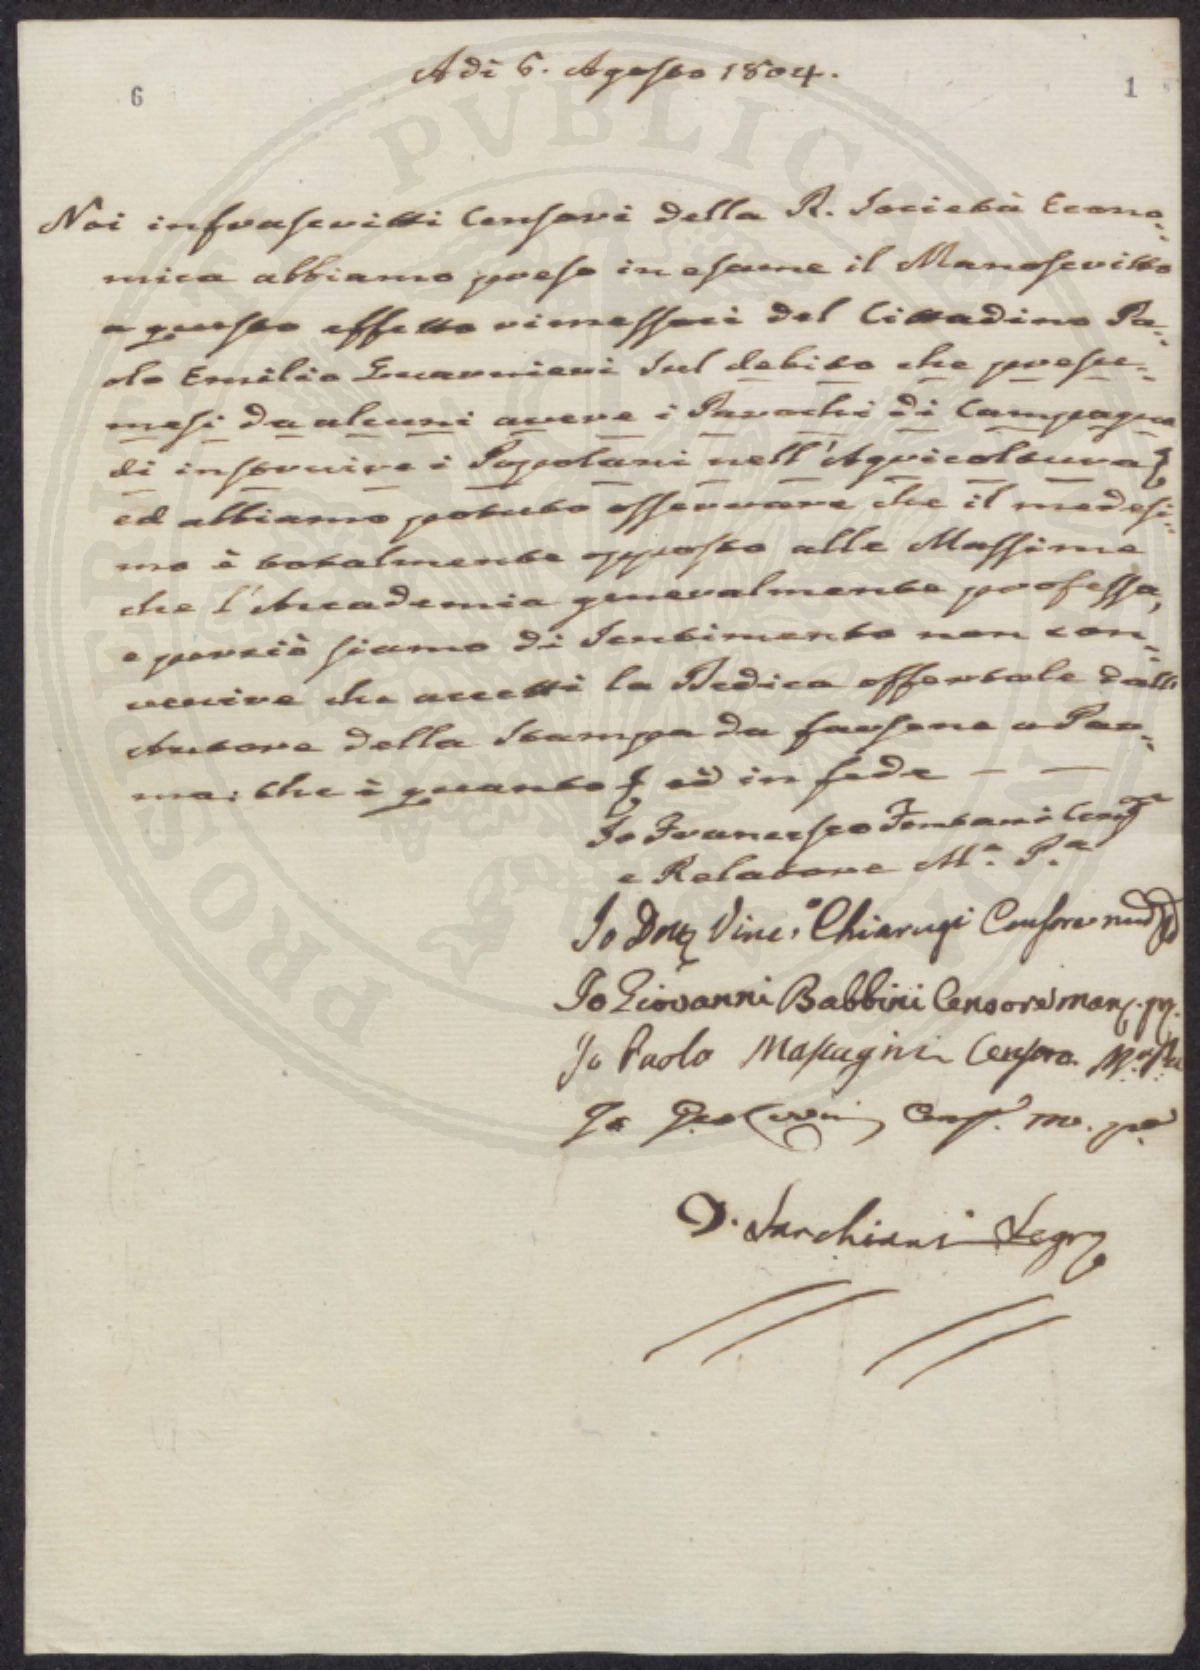 A di 6. Agosto 1804.
6
1
Noi infrascritti Censori della R. Società Econo=
mica abbiamo preso in esame il Manoscritto
a questo effetto rimessoci del Cittadino Pa=
olo Emilio Guarnieri sul debito che presu=
mesi da alcuni avere i Parochi di Campagna
di instruire i Popolani nell'Agricoltura
ed abbiamo potuto osservare che il medesi=
mo è totalmente opposto alle Massime
che l'Accademia generalmente professa,
e perciò siamo di sentimento non con=
venire che accetti la Dedica offertale dall'
Autore della stampa da farsene a Par=
ma: che è quanto ed in fede — —
Io Francesco Fontani
e Relatore M.ᵃ P.ᵃ
Io Vinc.º Chiarugi Censore
Io Giovanni Babbini Censore
Io Paolo Mascagni Censore
Io Cens.ᵉ m. pᵃ
D. Sarchiani Segr
PVBLICAE
PROSPERITATI